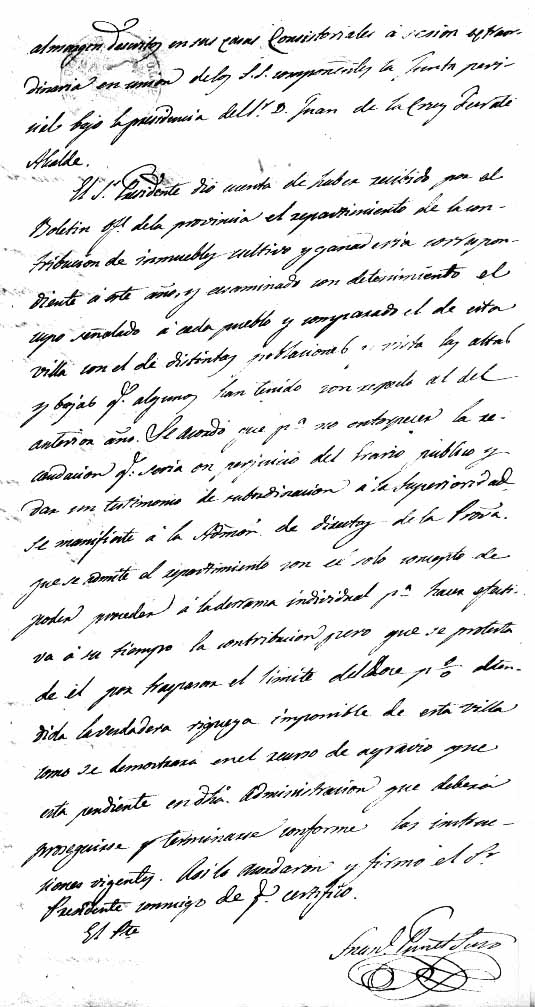 al margen descritos en sus casas Consistoriales á sesion extraor-
dinaria en union de los S.S. componentes la Junta peri-
cial bajo la presidencia del Sr. D. Juan de la Cruz
Alcalde.
El Sr. Presidente dio cuenta de haber recibido por el
Boletin Ofl. de la provincia el repartimiento de la con-
tribucion de inmuebles cultivo y ganaderia correspon-
diente á este año, y ecsaminado con detenimiento el
cupo señalado á cada pueblo y comparado el de esta
villa con el de distintas poblaciones vista las altas
y bajas q. algunos han tenido con respeto al del
anterior año. Se acordó que pa. no entorpecer la re-
caudacion q. seria en perjuicio del Erario publico y
dar un testimonio de subordinacion á la Superioridad
se manifieste á la Admon. de directos de la Prova.
que se admite el repartimiento con el solo concepto de
poder proceder á la derrama individual pa. hacer efecti-
va á su tiempo la contribucion pero que se protesta
de él por traspasar el limite del doce p%. aten-
dida la verdadera riqueza imponible de esta villa
como se demostrara en el recurso de agravio que
esta pendiente en dha. administracion que deberá
proseguirse y terminarse conforme las instruc-
ciones vigentes. Asi lo acordaron y firmó el Sr.
Presidente conmigo de q. certifico.
El Pte